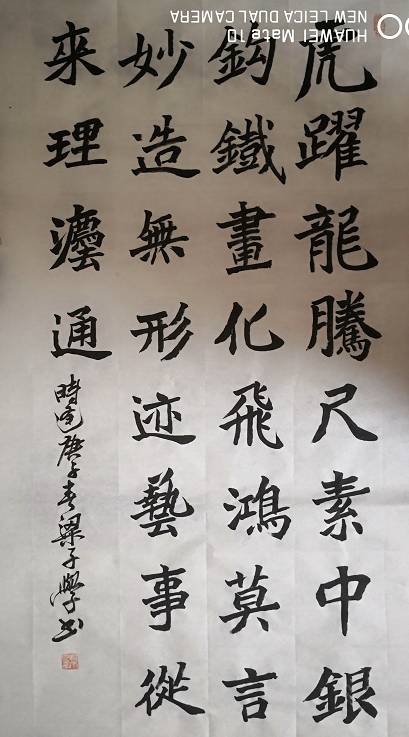 虎躍龍騰尺素中銀
鈎鐵畫化飛鴻莫言
妙造無形迹藝事從
來理灋通
時逢庚子春梁子學书
HUAWEI Mate 10
NEW LEICA DUAL CAMERA